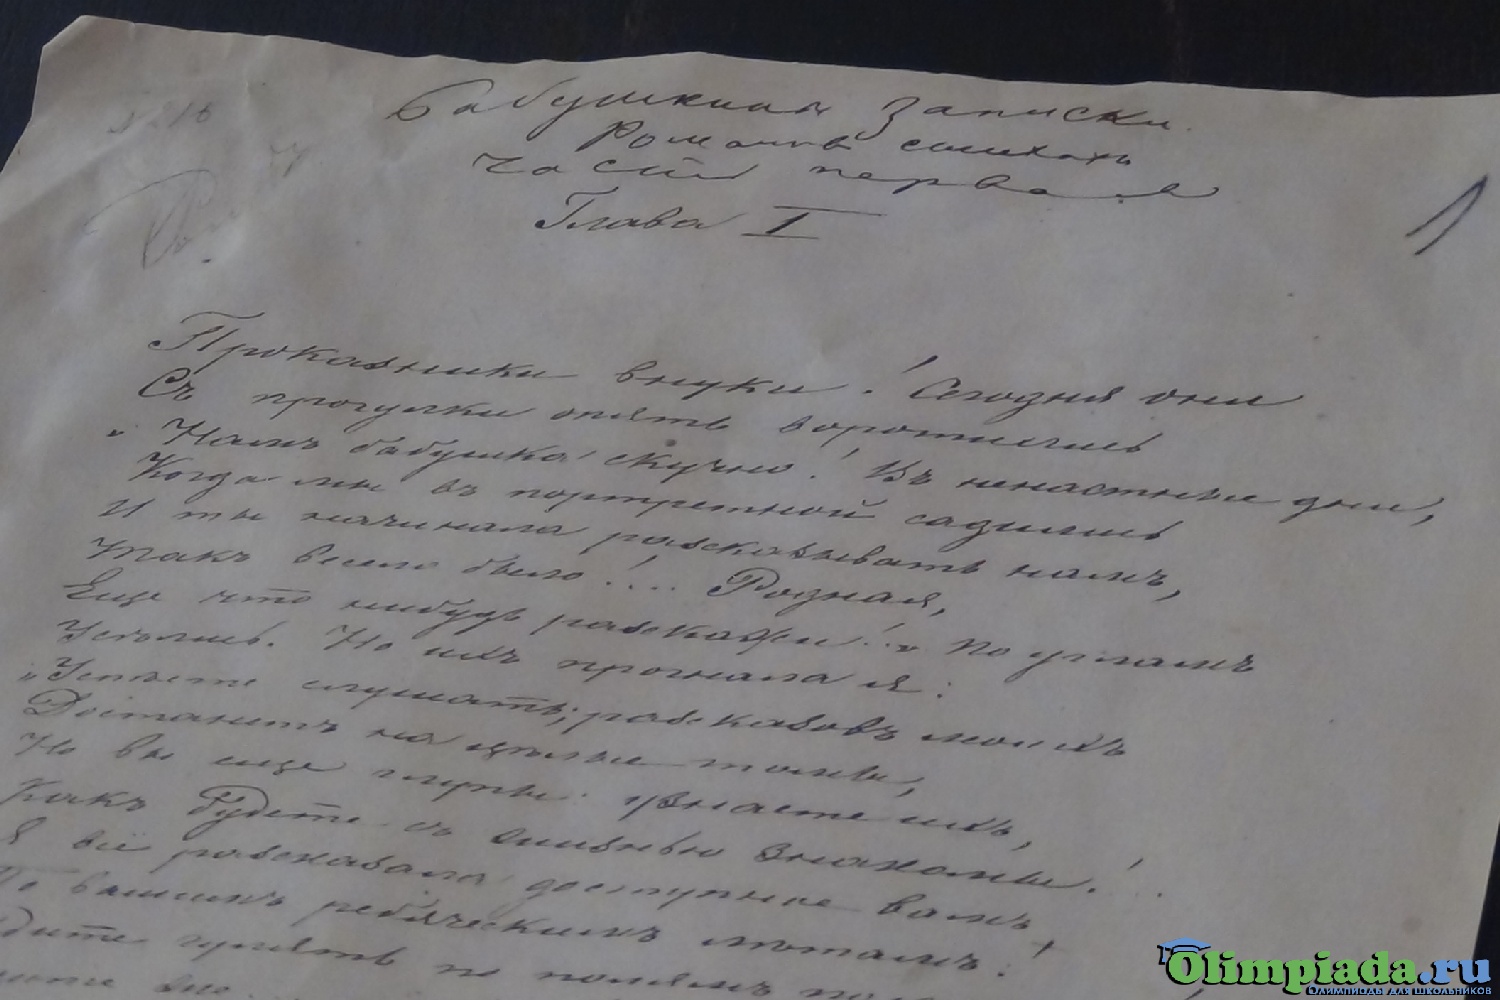 Бабушкины записки.
Романъ въ стихахъ
Часть первая
Глава I
1
Проказники внуки! Сегодня они
Съ прогулки опять воротились
"Намъ бабушка скучно! Въ ненастные дни,
Когда мы въ портретной садились
И ты начинала разсказывать намъ,
Такъ весело было!... Родная,
Еще что нибудь разскажи!.." По угламъ
Усѣлись. Но ихъ прогнала я:
"Успѣете слушать; разсказовъ моихъ
Достанетъ на цѣлые томы,
Но вы еще глупы: узнаете ихъ,
Какъ будете съ жизнью знакомы!..
Я всё разсказала доступное вамъ
По вашимъ ребяческимъ лѣтамъ:
Идите гулять по полямъ по
Olimpiada.ru
ОЛИМПИАДЫ ДЛЯ ШКОЛЬНИКОВ